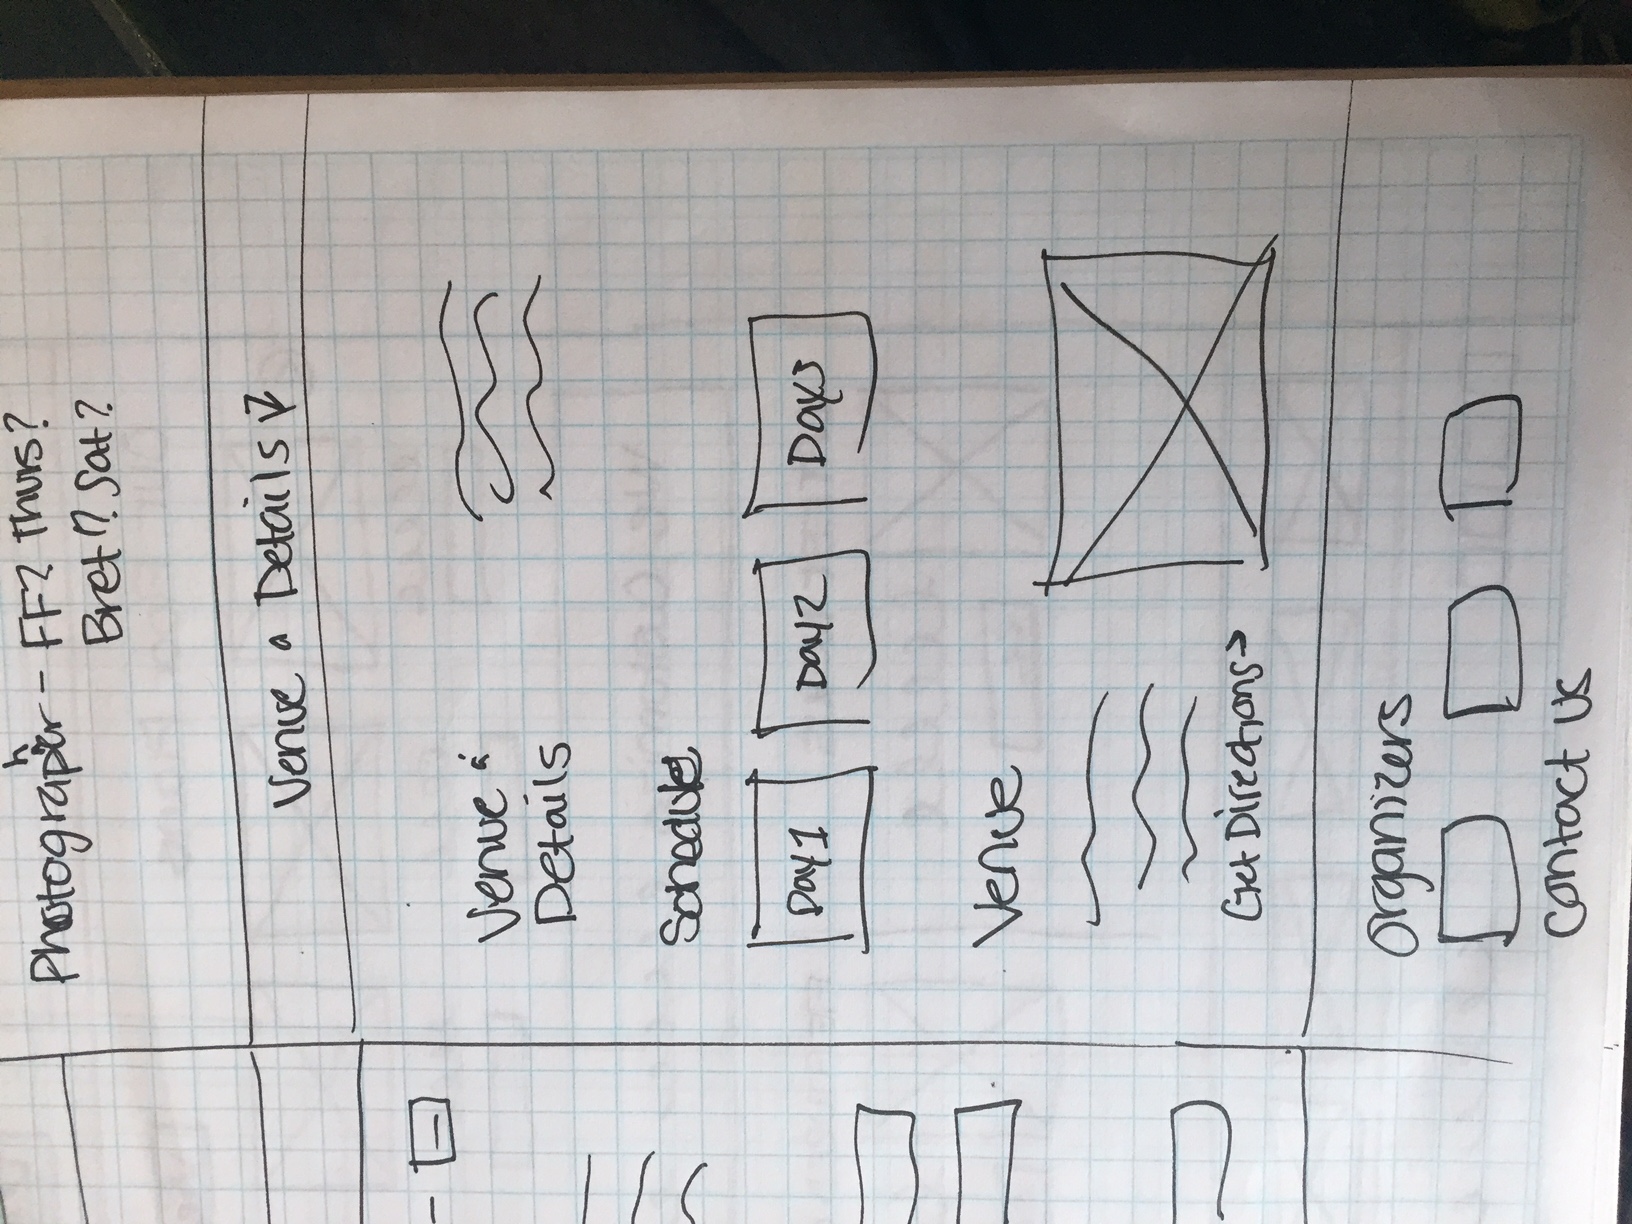 Photographer - FF? Thurs?
Bret? Sat?
Venue & Details
Venue &
Details
Schedule
Day 1 Day 2 Day 3
Venue
Get Directions →
Organizers
Contact Us